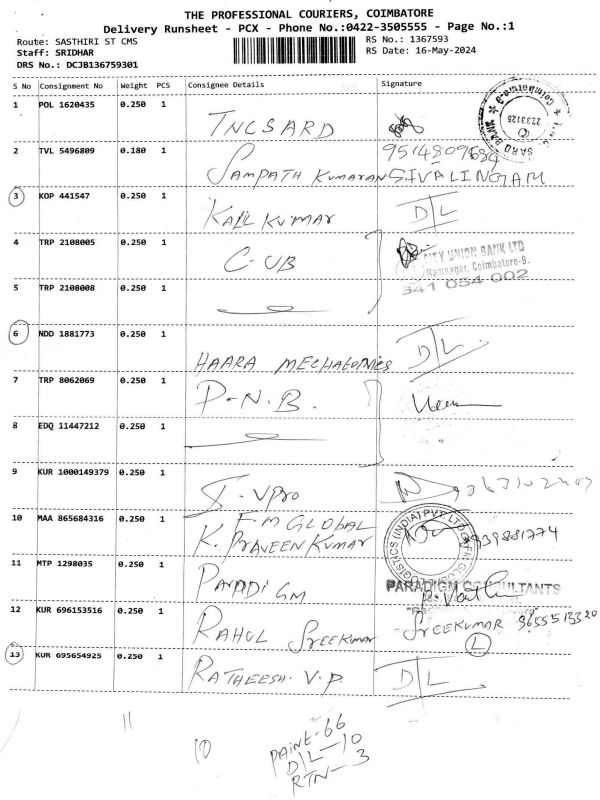 THE PROFESSIONAL COURIERS, COIMBATORE
Delivery Runsheet - PCX - Phone No.:0422-3505555 - Page No.:1
Route: SASTHIRI ST CMS
RS No.: 1367593
Staff: SRIDHAR
RS Date: 16-May-2024
DRS No.: DCJB136759301
S No Consignment No Weight PCS Consignee Details Signature
1 POL 1620435 0.250 1 TNCSARD
SARD BANK Coimbatore 2233126
2 TVL 5496809 0.180 1 SAMPATH KUMARAN SIVALINGAM
3 KOP 441547 0.250 1 KALL KUMAR D/L
4 TRP 2108005 0.250 1 C-UB
CITY UNION BANK LTD
Ramnagar, Coimbatore-9.
641 054 002
5 TRP 2108008 0.250 1
6 NDD 1881773 0.250 1 HAARA MECHATONICS D/L
7 TRP 8062069 0.250 1 P.N.B.
8 EDQ 11447212 0.250 1
9 KUR 1000149379 0.250 1 VPro
10 MAA 865684316 0.250 1 F.M GLOBAL
K. PRAVEEN KUMAR
11 MTP 1298035 0.250 1
PARADIGM CONSULTANTS
12 KUR 696153516 0.250 1 RAHUL SREEKUMAR SREEKUMAR 9655513320
L
13 KUR 695654925 0.250 1 RATHEESH. V.P D/L
11
10
PAINE-66
D/L-10
RTN-3